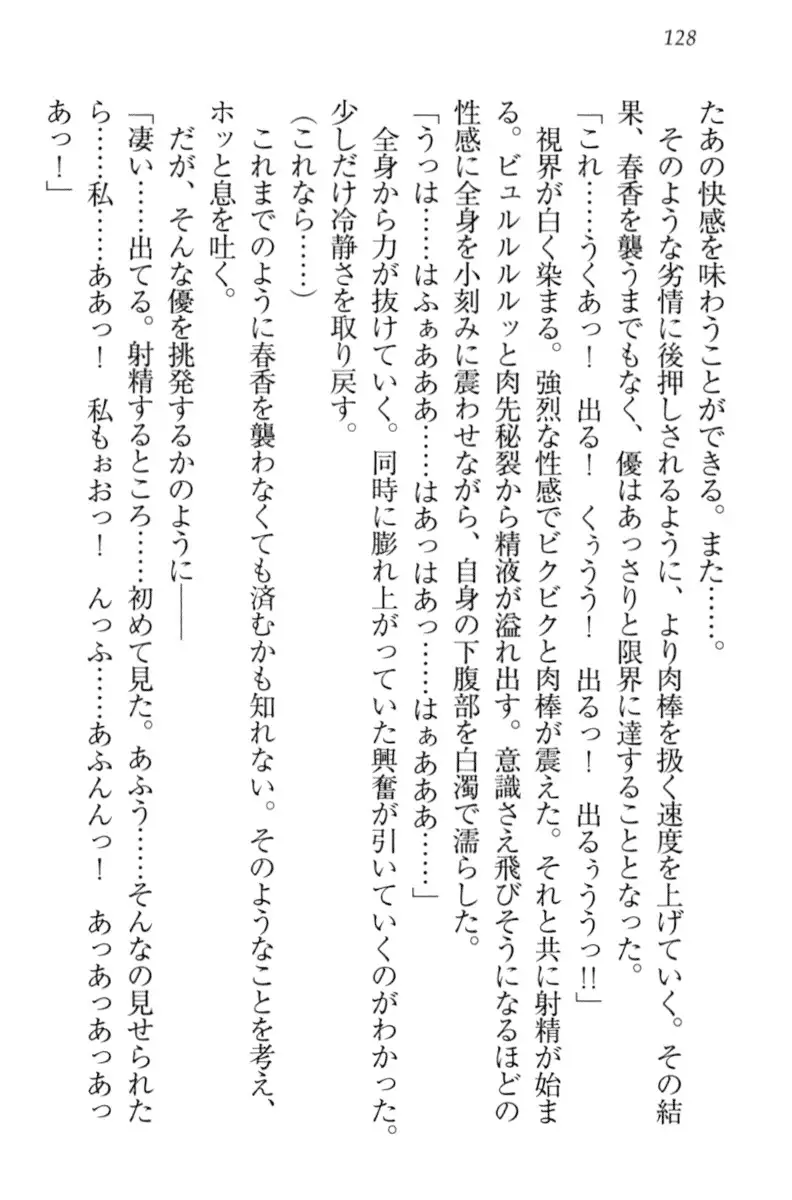 128
たあの快感を味わうことができる。また……。
そのような劣情に後押しされるように、より肉棒を扱く速度を上げていく。その結
果、春香を襲うまでもなく、優はあっさりと限界に達することとなった。
「これ……うくあっ！　出る！　くぅうう！　出るっ！　出るぅううっ!!」
視界が白く染まる。強烈な性感でビクビクと肉棒が震えた。それと共に射精が始ま
る。ビュルルルルッと肉先秘裂から精液が溢れ出す。意識さえ飛びそうになるほどの
性感に全身を小刻みに震わせながら、自身の下腹部を白濁で濡らした。
「うっは……はふぁあああ……はあっはあっ……はぁあああ……」
全身から力が抜けていく。同時に膨れ上がっていた興奮が引いていくのがわかった。
少しだけ冷静さを取り戻す。
（これなら……）
これまでのように春香を襲わなくても済むかも知れない。そのようなことを考え、
ホッと息を吐く。
だが、そんな優を挑発するかのように――
「凄い……出てる。射精するところ……初めて見た。あふう……そんなの見せられた
ら……私……ああっ！　私もぉおっ！　んっふ……あふんんっ！　あっあっあっあっ
あっ！」